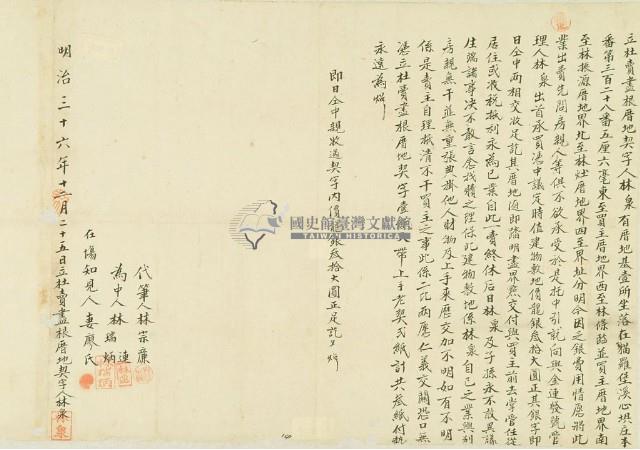 立杜賣盡根厝地契字人林泉有厝地基壹所坐落在貓羅堡溪心垻庄本
番第三百二十八番五厘六毫東至買主厝地界西至林條踏並買主厝地界南
至林振源厝地界北至林灶厝地界四至界址分明今因乏銀費用情愿將此
業出賣先問房親人等俱不欲承受於是托中引就向與金連發號管
理人林泉出首承買憑中議定時值建物敷地價龍銀叁拾大圓正其銀字即
日仝中兩相交收足訖其厝地隨即踏明盡界照交付與買主前去掌管任從
居住或收稅抵利永為己業自此一賣終休后日林泉及子孫永不敢異議
生端諸事決不敢言念找贖之理保此建物敷地係林泉自己之業與別
房親無干並無重張典掛他人財物及上手來歷交加不明如有不明
係是賣主自理抵清不干買主之事此係二比兩愿仁義交關恐口無
憑立杜賣盡根厝地契字壹紙帶上手老契弍紙計共叁紙付執
永遠為炤
即日仝中親收過契字內價龍銀叁拾大圓正足訖又炤
國史館臺灣文獻館
TAIWAN HISTORICA
代筆人林宗廉
為中人林瑞炳
連
在場知見人妻廖氏
明治三十六年十二月二十五日立杜賣盡根厝地契字人林泉